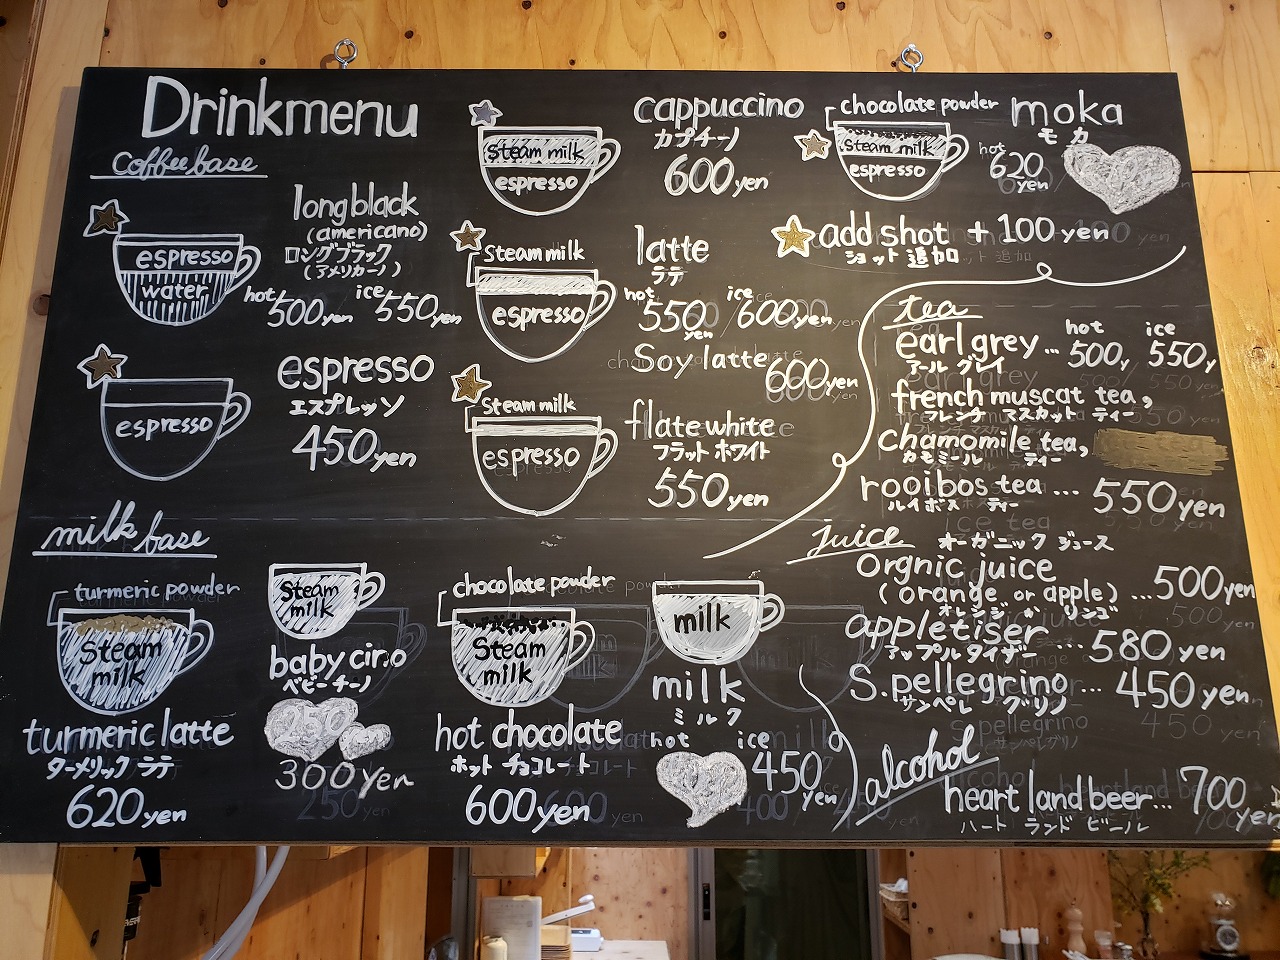 Drinkmenu
coffee base
espresso
water
long black
(americano)
ロングブラック
(アメリカーノ)
hot 500yen ice 550yen
espresso
espresso
エスプレッソ
450yen
steam milk
espresso
cappuccino
カプチーノ
600yen
Steam milk
espresso
latte
ラテ
hot 550yen / ice 600yen
Soy latte 600yen
Steam milk
espresso
flate white
フラット ホワイト
550yen
chocolate powder
steam milk
espresso
moka
モカ
hot 620yen
add shot + 100yen
ショット 追加
tea
hot ice
earl grey... 500y 550y
アールグレイ
french muscat tea,
フレンチ マスカット ティー
chamomile tea,
カモミール ティー
rooibos tea ... 550yen
ルイボス ティー
juice オーガニック ジュース
Orgnic juice
(orange or apple) ...500yen
オレンジ か リンゴ
appletiser ...580yen
アップルタイザー
S.pellegrino... 450yen
サンペレグリノ
alcohol
heart land beer... 700yen
ハート ランド ビール
milk base
turmeric powder
Steam milk
turmeric latte
ターメリック ラテ
620yen
Steam milk
baby cino
ベビーチーノ
300yen
chocolate powder
Steam milk
hot chocolate
ホット チョコレート
600yen
milk
milk
ミルク
hot ice
450yen